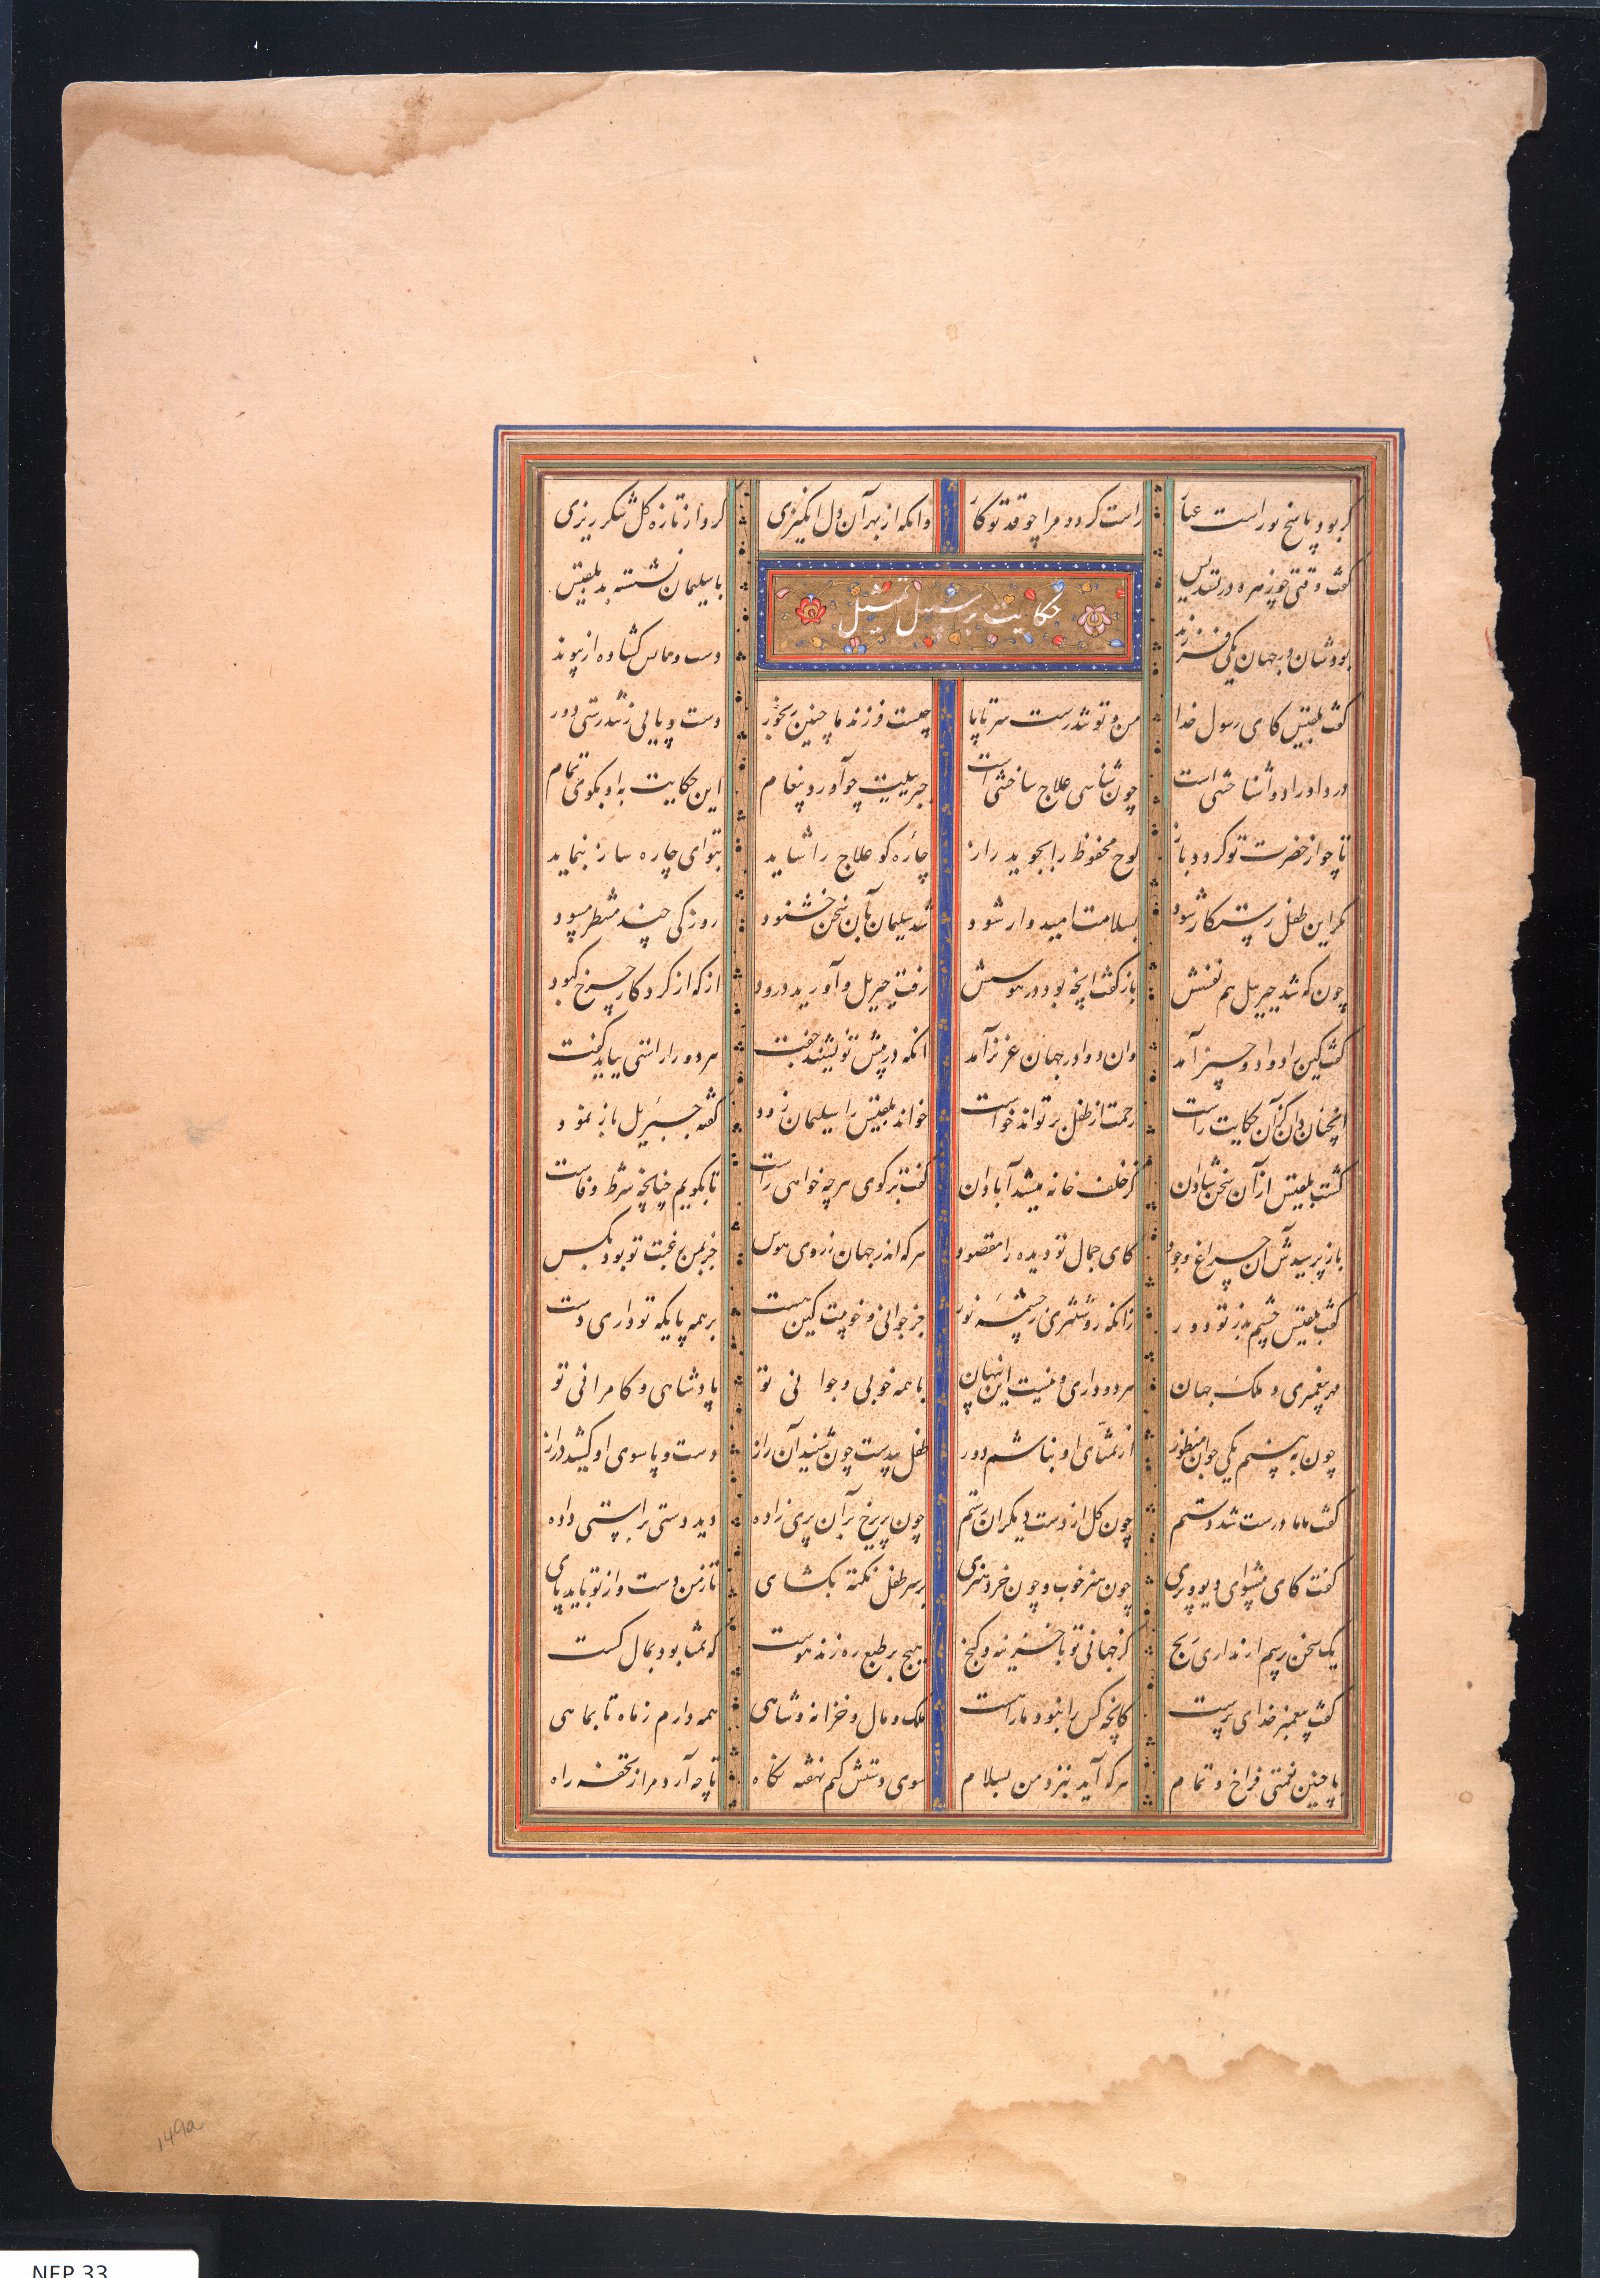 گر بود پاسخ تو راست عیار راست گردد مرا چو قد تو کار وانگه از بهر آن دل انگیزی کرد از تازه گل شکر ریزی
گفت وقتی چو زهره در تسدیس با سلیمان نشسته بد بلقیس
حکایت بر سبیل تمثیل
بودشان در جهان یکی فرزند دست و پاش گشاده از پیوند
گفت بلقیس کای رسول خدا من و تو تندرست سر تا پا چیست فرزند ما چنین رنجور دست و پایی ز تندرستی دور
درد او را دوا شناختنی است چون شناسی علاج ساختنی است جبرئیلت چو آورد پیغام این حکایت به او بگوی تمام
تا چو از حضرت تو گردد باز لوح محفوظ را بجوید راز چارهٔ کو علاج را شاید بتو ای چاره ساز بنماید
مگر این طفل رستگار شود بسلامت امیدوار شود شد سلیمان بآن سخن خشنود روزکی چند منتظر میبود
چون که شد جبرئیل هم نفسش باز گفت آنچه بود در هوسش رفت جبریل و آورید درود از که از کردگار چرخ کبود
گفت کین را دوا دو چیز آمد وان دو اندر جهان عزیز آمد آنکه در پیش تو نشیند جفت هر دو را راستی بباید گفت
آنچنان دان کز آن حکایت راست زحمت از طفل بر تواند خاست خواند بلقیس را سلیمان زود گفته جبرئیل باز نمود
گشت بلقیس از آن سخن شادان کز خلف خانه میشد آبادان گفت برگوی هر چه خواهی راست تا بگویم چنانچه شرط وفاست
باز پرسیدش آن چراغ وجود کای جمال تو دیده را مقصود هر که اندر جهان ز روی هوس جز بمن رغبت تو بود بکس
گفت بلقیس چشم بد ز تو دور زانکه روشنتری ز چشمه نور جز جوانی و خوبیت کین هست بر همه پایگه تو داری دست
مهر پیغمبری و ملک جهان هر دو داری و نیست این پنهان با همه خوبی و جوانی تو پادشاهی و کامرانی تو
چون به بینم یکی جوان منظور از تمنّای او نباشم دور طفل بیدست چون شنید آن راز دست و پا سوی او کشید دراز
گفت ماما درست شد دستم چون گل از دست دیگران رستم چون پریرخ بر آن پری زاده دید دستی براستی داده
گفت کای پیشوای دیو و پری چون هنر خوب و چون خرد هنری بر سر طفل نکتهٔ بگشای تا ز من دست و از تو یابد پای
یک سخن پرسم ار نداری رنج کز جهانی تو با خزینه و گنج هیچ بر طبع ره زند هوست که تمنا بود بمال کست
گفت پیغمبر خدای پرست کانچه کس را نبود ما را هست ملک و مال و خزانه و شاهی همه دارم ز ماه تا بماهی
با چنین نعمتی فراخ و تمام هر که آید بنزد من بسلام سوی دستش کنم نهفته نگاه تا چه آرد مرا ز تحفه راه
149a
NEP 33